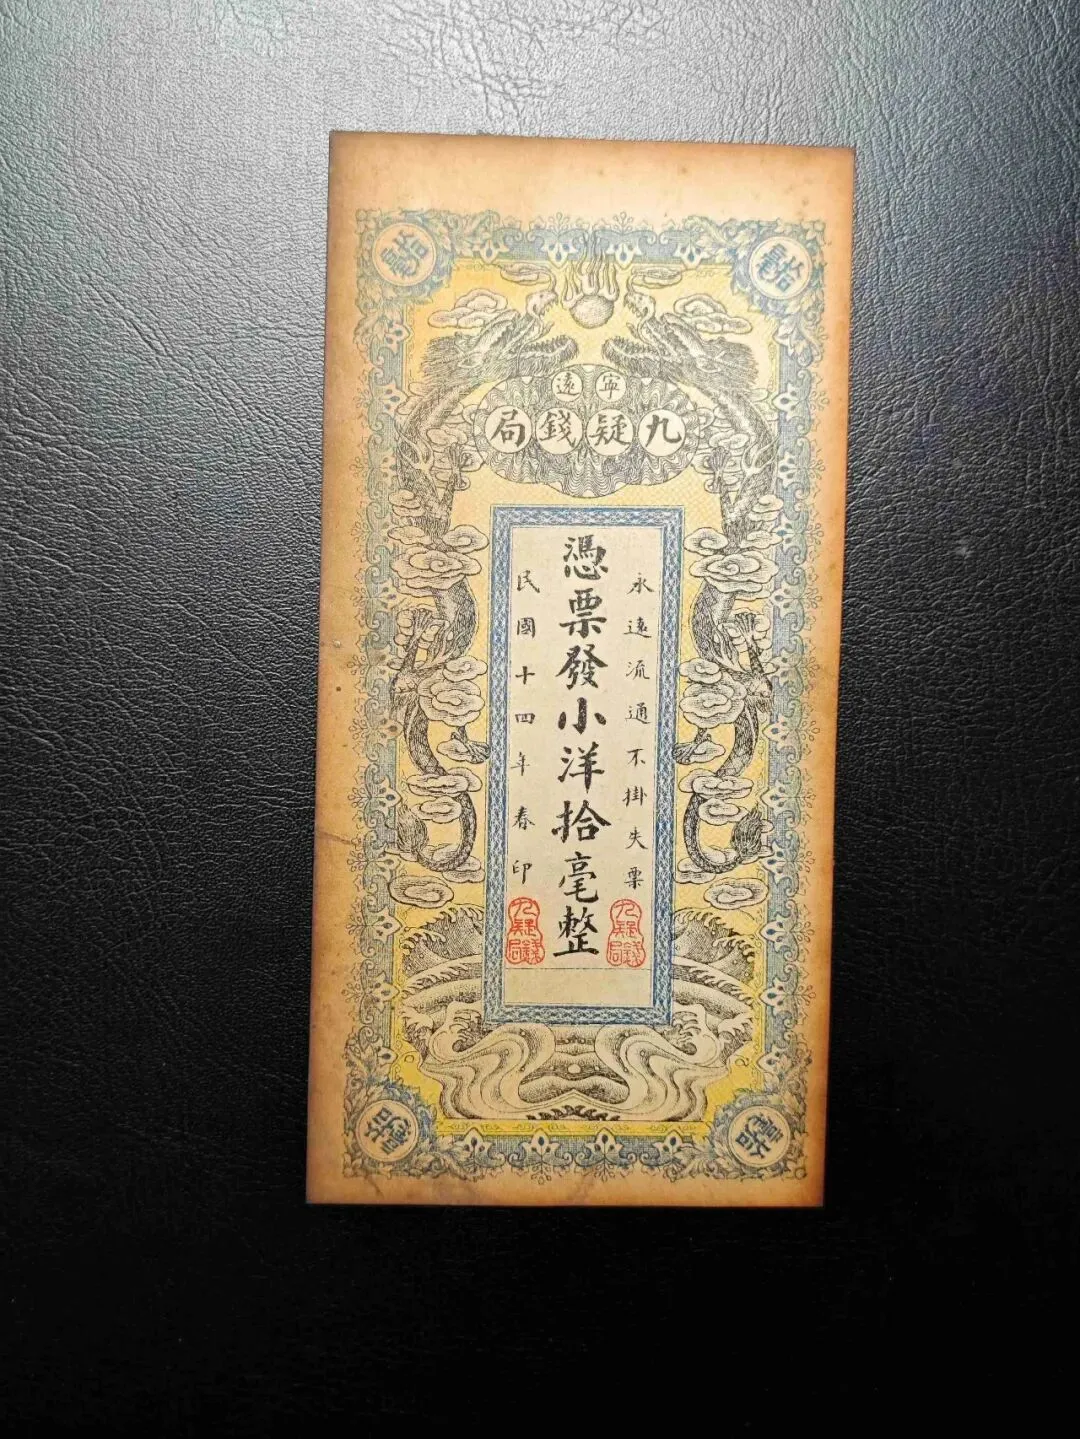 拾毫
拾毫
寍遠
九疑錢局
永遠流通不掛失票
憑票發小洋拾毫整
民國十四年春印
九疑錢局
九疑錢局
拾毫
拾毫